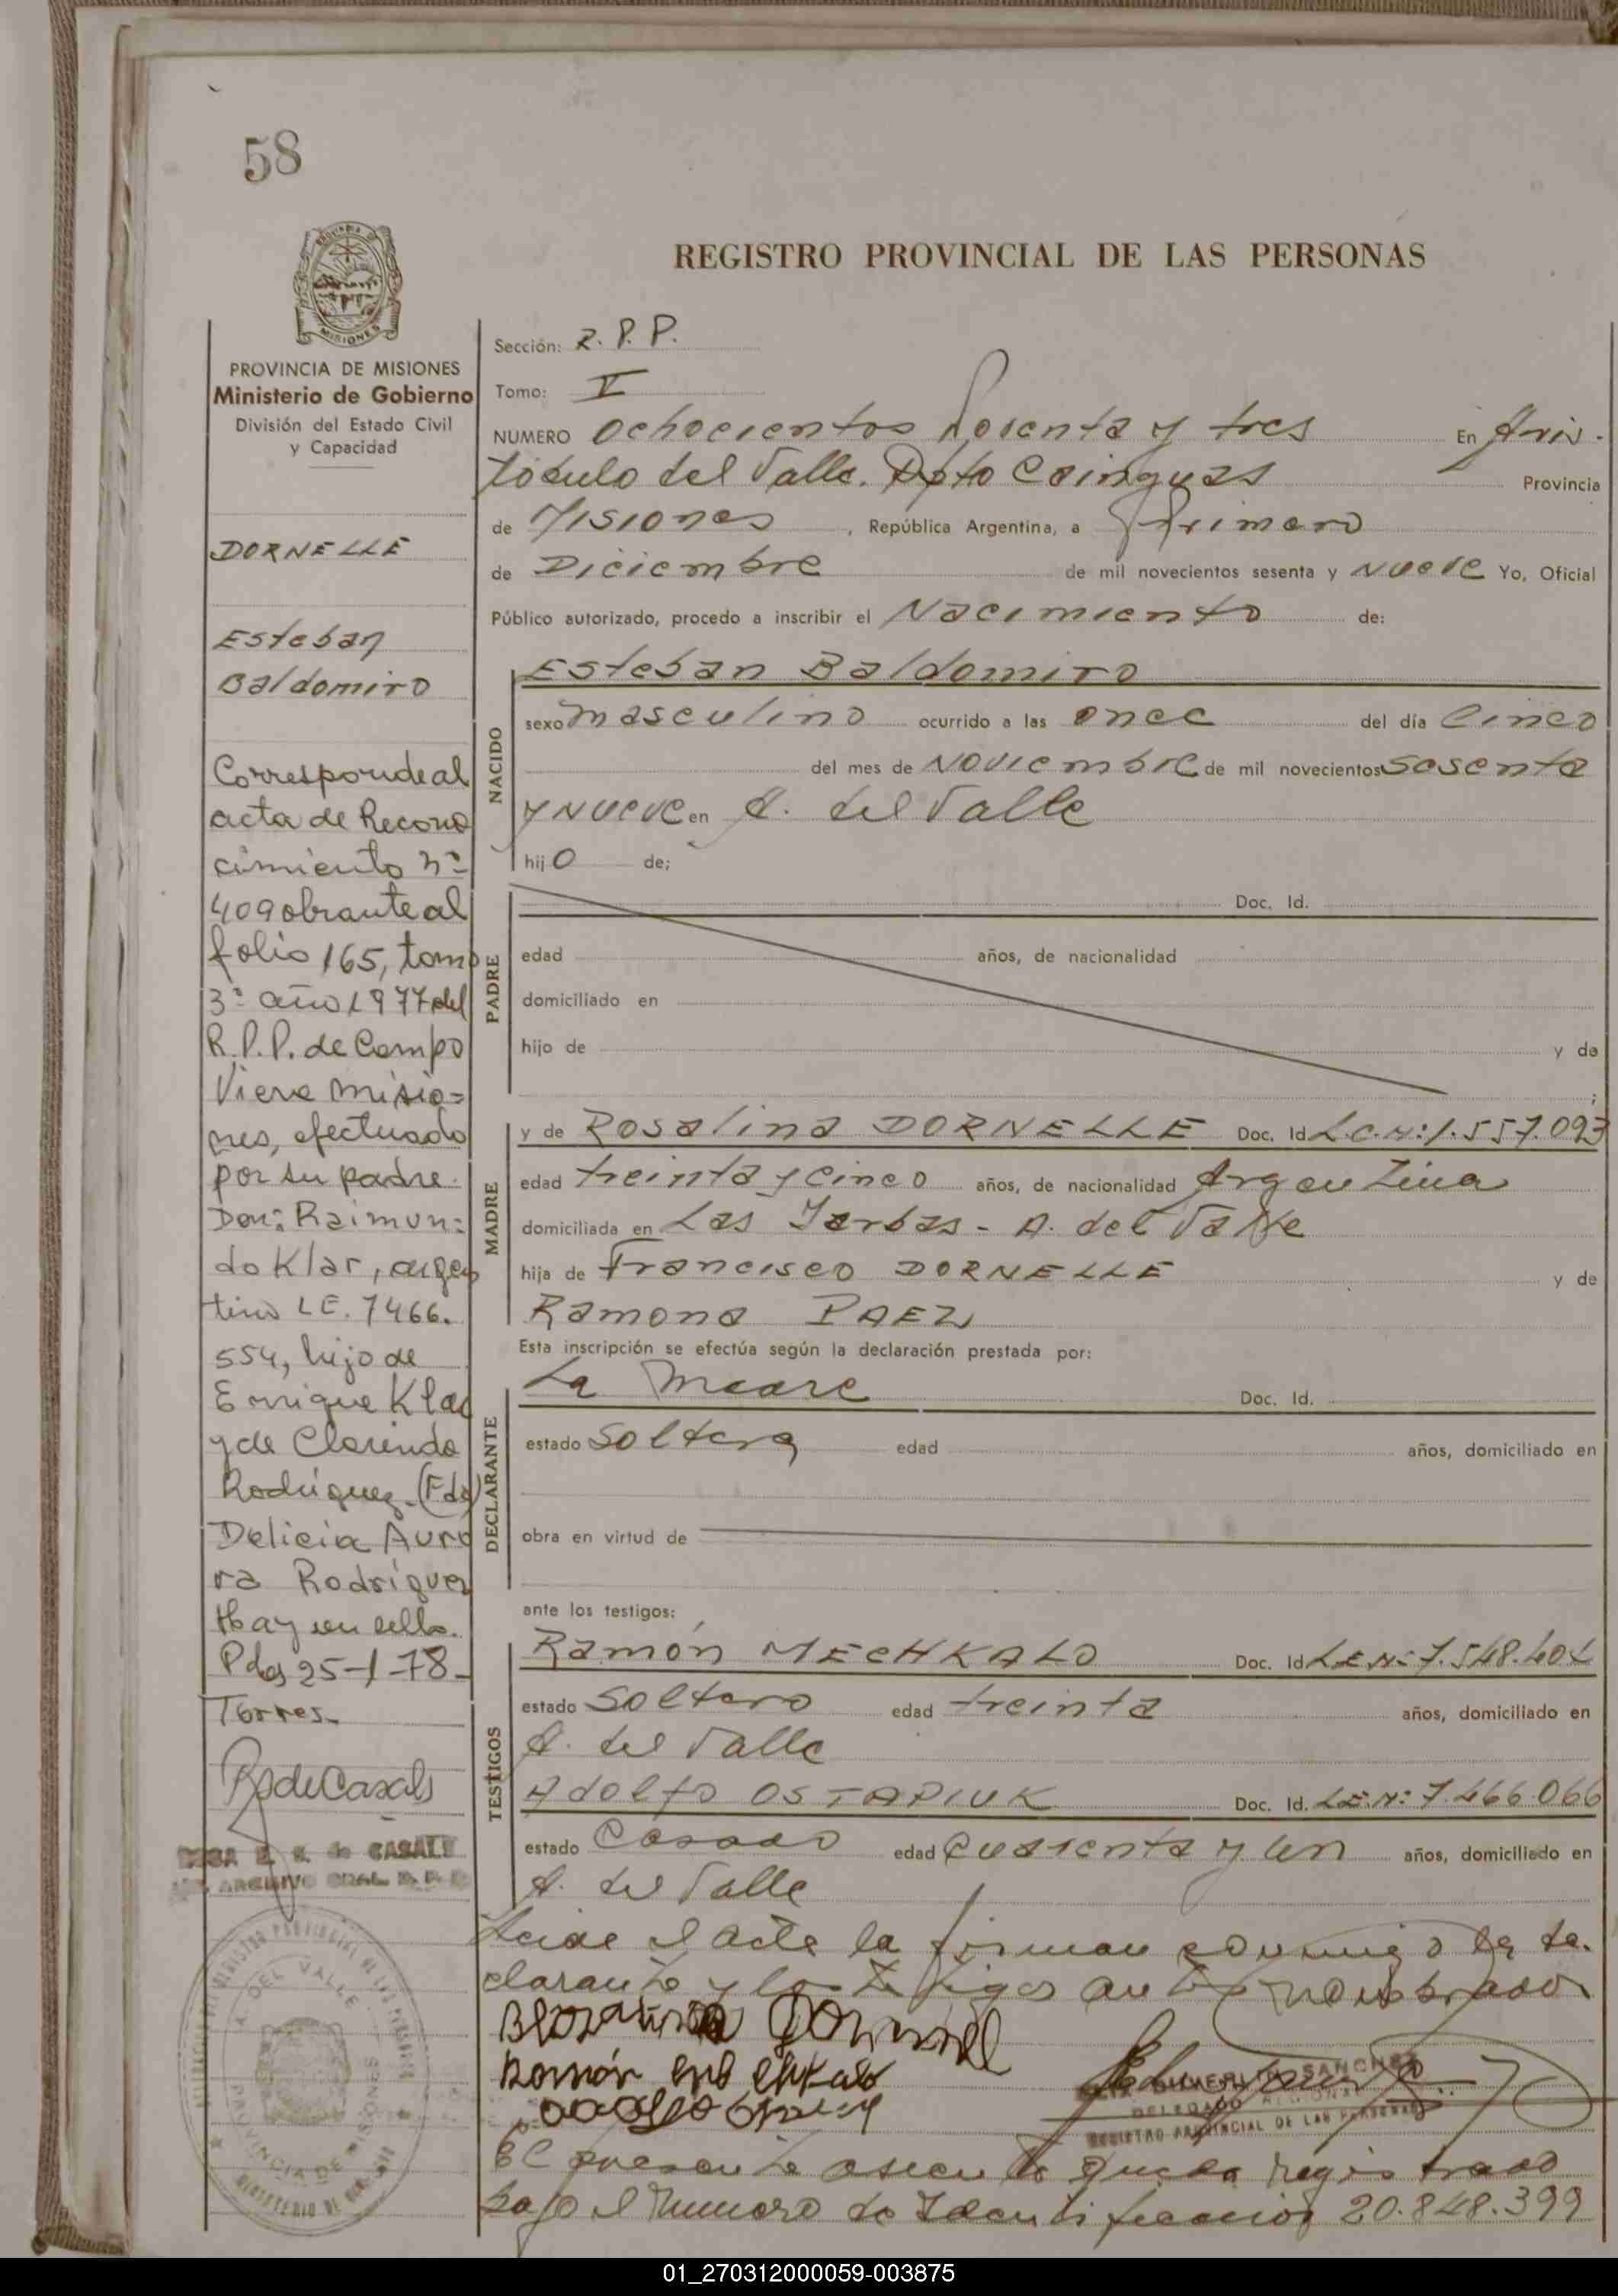 58
PROVINCIA DE MISIONES
Ministerio de Gobierno
División del Estado Civil
y Capacidad
DORNELLE
Esteban
Baldomiro
Corresponde al
acta de Recono
cimiento nº
409 obrante al
folio 165, tomo
3º año 1977 del
R.P.P. de Campo
Viera Misio=
nes, efectuado
por su padre
Don: Raimun=
do Klar, argen
tino LE. 7466.
554, hijo de
Enrique Klar
y de Clorinda
Rodríguez. (Fdo)
Delicia Auro
ra Rodríguez
Hay un sello.
Pdas 25-1-78-
Torres-
R de Casals
de CASALS
ARCHIVO GRAL. R. P. P.
REGISTRO PROVINCIAL DE LAS PERSONAS
A. DEL VALLE
PROVINCIA DE MISIONES
REGISTRO PROVINCIAL DE LAS PERSONAS
Sección: R. P. P.
Tomo: V
NUMERO Ochocientos sesenta y tres En Aris-
tóbulo del Valle. Dpto Cainguas Provincia
de Misiones, República Argentina, a Primero
de Diciembre de mil novecientos sesenta y nueve Yo, Oficial
Público autorizado, procedo a inscribir el Nacimiento de:
NACIDO
Esteban Baldomiro
sexo masculino ocurrido a las once del día Cinco
del mes de Noviembre de mil novecientos sesenta
y nueve en A. del Valle
hijo de;
PADRE
Doc. Id.
edad años, de nacionalidad
domiciliado en
hijo de y de
;
MADRE
y de Rosalina DORNELLE Doc. Id L.C.Nº: 1.557.093
edad treinta y cinco años, de nacionalidad Argentina
domiciliada en Las Yerbas - A. del Valle
hija de Francisco DORNELLE y de
Ramona PAEZ
Esta inscripción se efectúa según la declaración prestada por:
DECLARANTE
La Madre Doc. Id.
estado Soltera edad años, domiciliado en
obra en virtud de
ante los testigos:
TESTIGOS
Ramón MECHKALO Doc. Id L.E.Nº 7.548.404
estado Soltero edad treinta años, domiciliado en
A. del Valle
Adolfo OSTAPIUK Doc. Id. L.E.Nº: 7.466.066
estado Casado edad Cuarenta y un años, domiciliado en
A. del Valle
Leida el acta la firman conmigo la de-
clarante y los testigos antes nombrados
Ramón
SANCHEZ
DELEGADO
REGISTRO PROVINCIAL DE LAS PERSONAS
El presente asiento queda registrado
bajo el numero de Identificacion 20.848.399
01_270312000059-003875